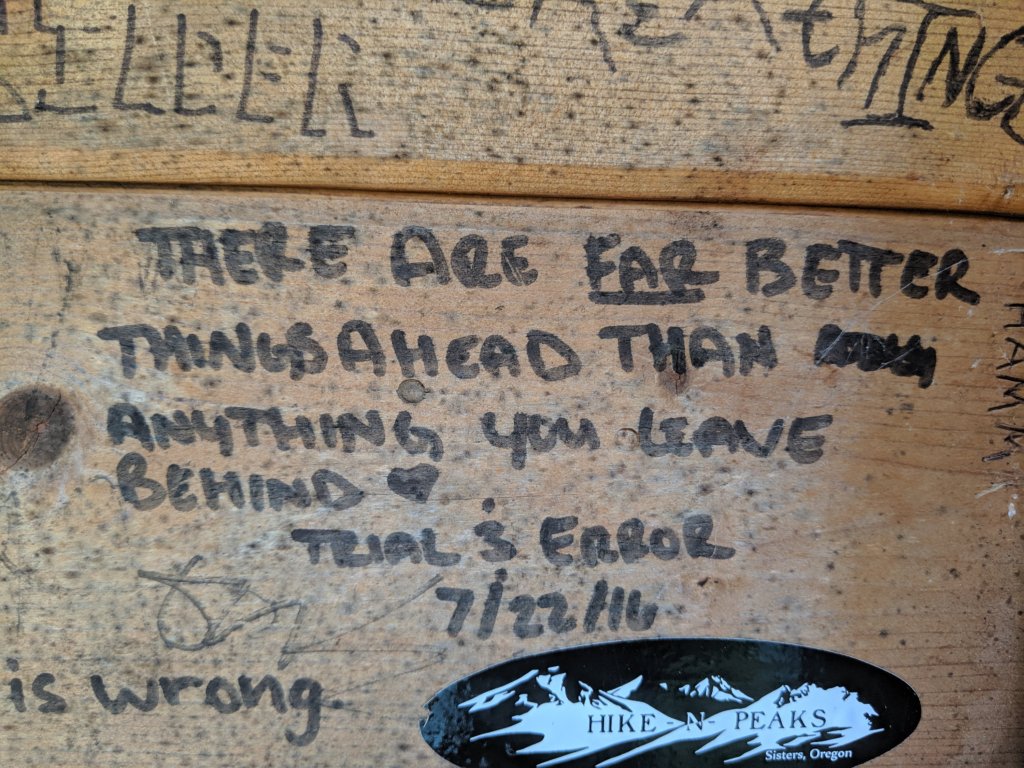 THERE ARE FAR BETTER
THINGS AHEAD THAN
ANYTHING YOU LEAVE
BEHIND ♥
TRIAL & ERROR
7/22/16
is wrong
HIKE-N-PEAKS
Sisters, Oregon